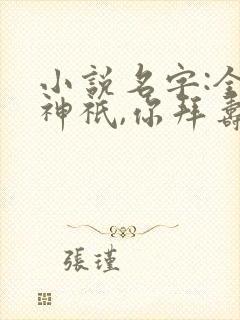 小說名字:全
神祇,你拜壽
張瑾